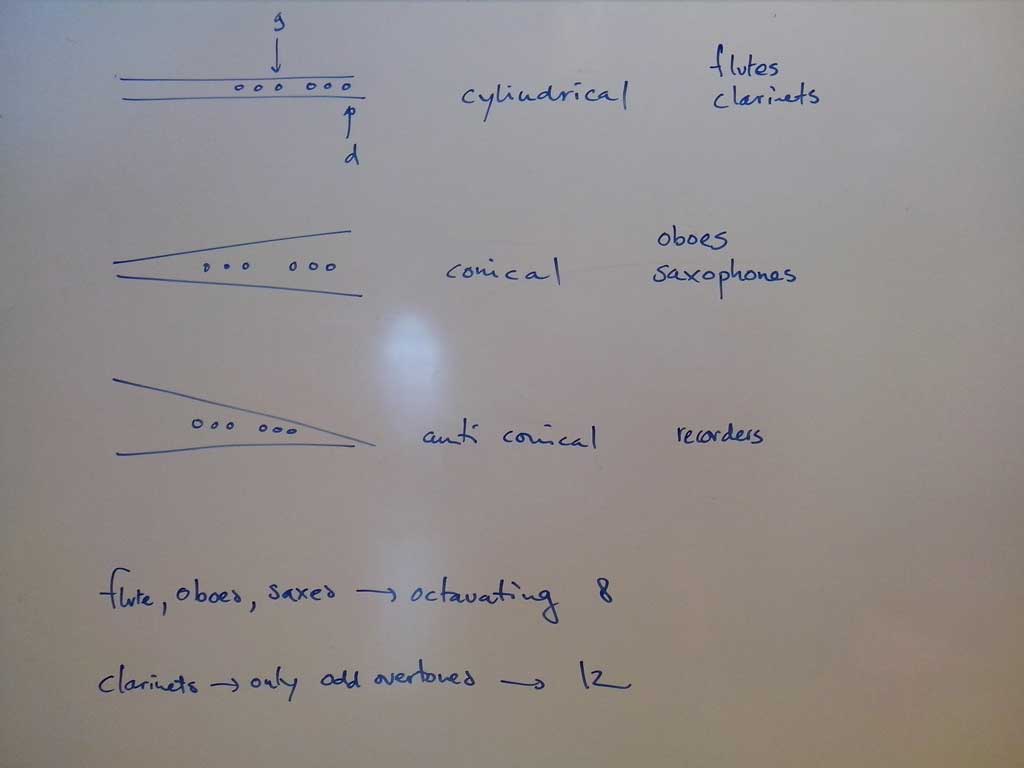 g
cylindrical flutes
clarinets
d
conical oboes
saxophones
anti conical recorders
flute, oboes, saxes → octavating 8
clarinets → only odd overtones → 12